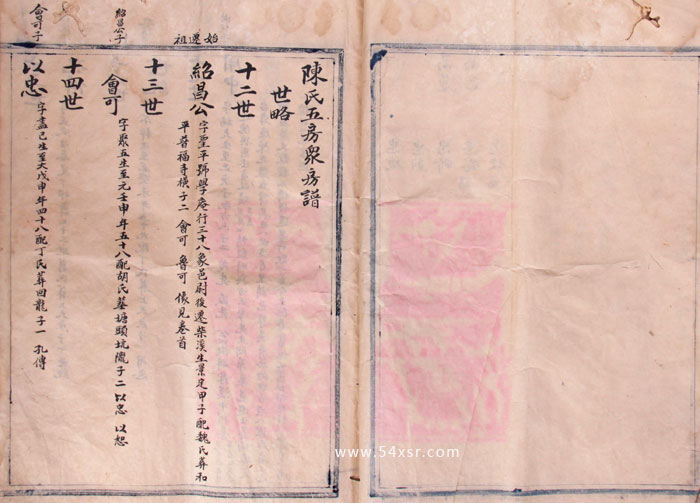 陳氏五房眾房譜
世略
十二世
始遷祖
紹昌公
字聖平號學庵行三十八象邑尉後遷柴溪生景定甲子配魏氏葬和
平普福寺橫子二 會可 魯可 像見卷首
十三世
紹昌公子
會可
字聚五生至元壬申年五十八配胡氏墓塘頭坑隴子二 以忠 以恕
十四世
會可子
以忠
字盡己生至大戊申年四十八配丁氏葬回龍子一 孔傳
www.54xsr.com